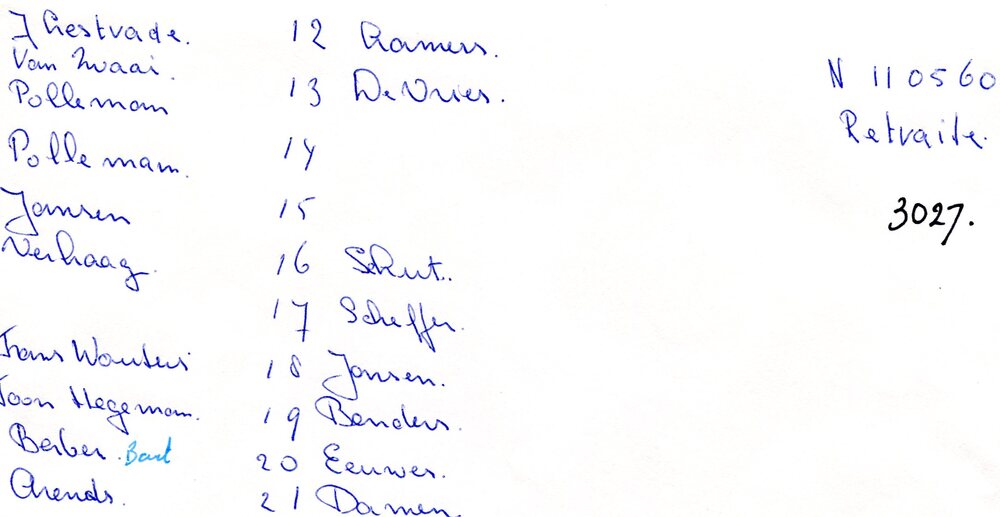 J Chestvade. 12 Cramers.
Van Zwaai.
Polleman 13 De Vries.
N 110560
Retraite.
Polleman. 14
Jansen 15
3027.
Verhaag. 16 Schut.
17 Scheffer.
Frans Wouters 18 Jansen.
Toon Hegeman. 19 Benders.
Berber. Bart 20 Eeuwes.
Arends. 21 Damen.